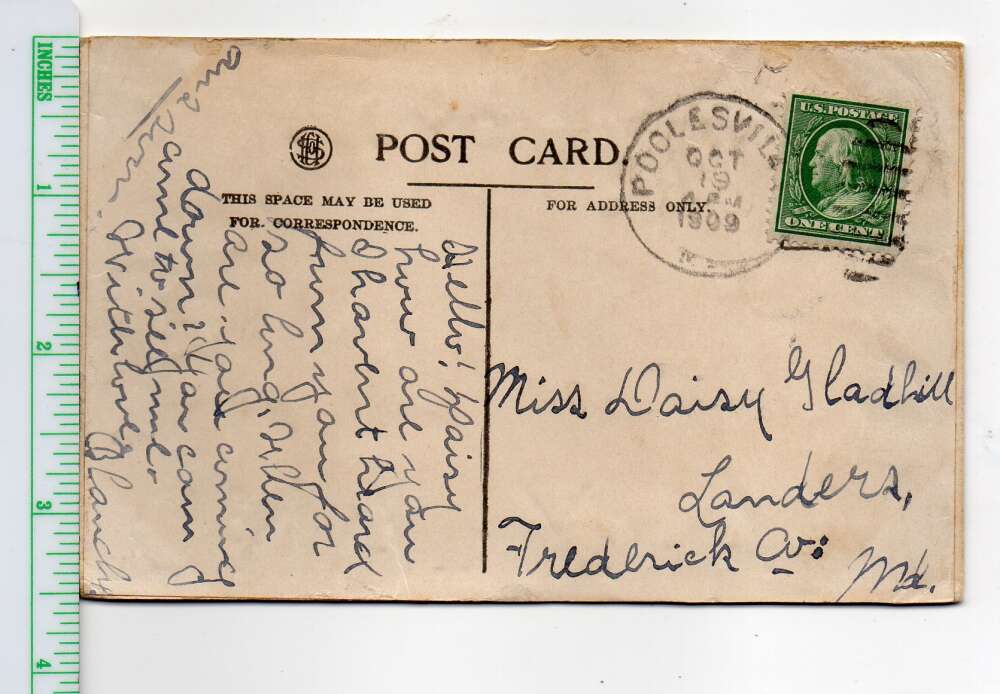 INCHES
1
2
3
4
POST CARD.
THIS SPACE MAY BE USED
FOR CORRESPONDENCE.
FOR ADDRESS ONLY.
POOLESVILLE
OCT
19
1909
U.S. POSTAGE
ONE CENT
Hello! Daisy
how are you
I havent heard
from you for
so long, When
are you coming
down? You can
come to see me
With love
Blanche
Miss Daisy Gladhill
Landers,
Frederick Co:
Md.